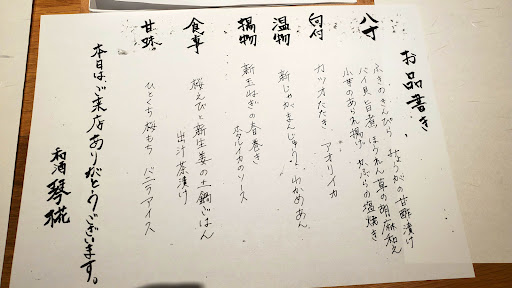 お品書き
八寸
ふきのきんぴら みょうがの甘酢漬け
バイ貝旨煮 ほうれん草の胡麻和え
小芋のあられ揚げ かぶらの塩焼き
向付
カツオたたき アオリイカ
温物
新じゃがまんじゅう わかめあん
揚物
新玉ねぎの春巻き
ホタルイカのソース
食事
桜えびと新生姜の土鍋ごはん
出汁茶漬け
甘味
ひとくち桜もち バニラアイス
本日はご来店ありがとうございます。
和酒 琴椛